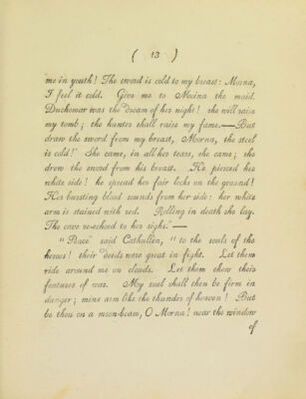 ( 13 )
me in youth! The sword is cold to my breast: Morna,
I feel it cold. Give me to Moina the maid.
Duchomar was the dream of her night! she will raise
my tomb; the hunter shall raise my fame.—But
draw the sword from my breast, Morna, the steel
is cold!" She came, in all her tears, she came; she
drew the sword from his breast. He pierced her
white side! he spread her fair locks on the ground!
Her bursting blood sounds from her side: her white
arm is stained with red. Rolling in death she lay.
The cave re-echoed to her sighs."—
"Peace" said Cuthullin, "to the souls of the
heroes! their deeds were great in fight. Let them
ride around me on clouds. Let them shew their
features of war. My soul shall then be firm in
danger; mine arm like the thunder of heaven! But
be thou on a moon-beam, O Morna! near the window
of